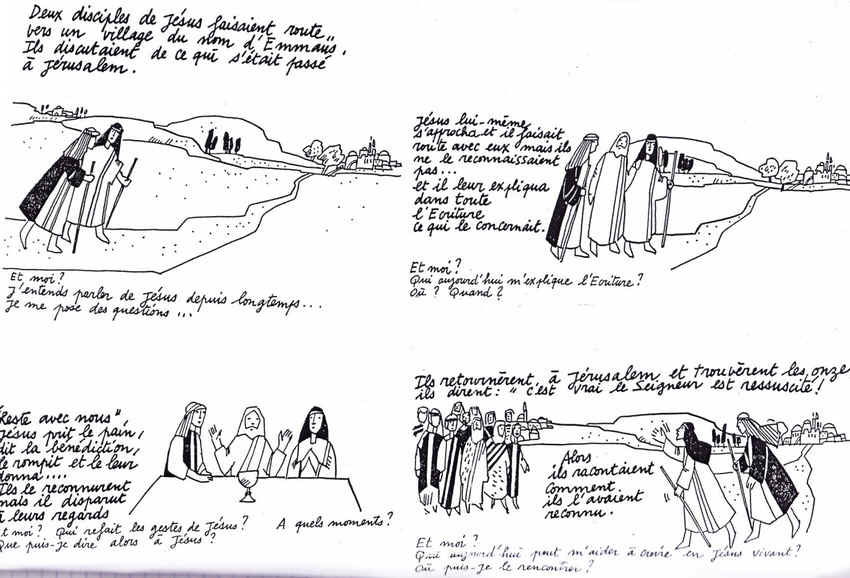 Deux disciples de Jésus faisaient route
vers un village du nom d'Emmaüs.
Ils discutaient de ce qui s'était passé
à Jérusalem.
Et moi?
J'entends parler de Jésus depuis longtemps...
Je me pose des questions ...
Jésus lui-même
s'approcha et il faisait
route avec eux mais ils
ne le reconnaissaient
pas...
et il leur expliqua
dans toute
l'Ecriture
ce qui le concernait.
Et moi?
Qui aujourd'hui m'explique l'Ecriture?
Où ? Quand ?
Reste avec nous"
Jésus prit le pain,
dit la bénédiction,
le rompit et le leur
donna....
Ils le reconnurent
mais il disparut
à leurs regards
Et moi? Qui refait les gestes de Jésus? A quels moments?
Que puis-je dire alors à Jésus ?
Ils retournèrent à Jérusalem et trouvèrent les onze
ils dirent: "C'est vrai le Seigneur est ressuscité!
Alors
ils racontaient
comment
ils l'avaient
reconnu.
Et moi?
Qui aujourd'hui peut m'aider à croire en Jésus vivant?
Où puis-je le rencontrer?